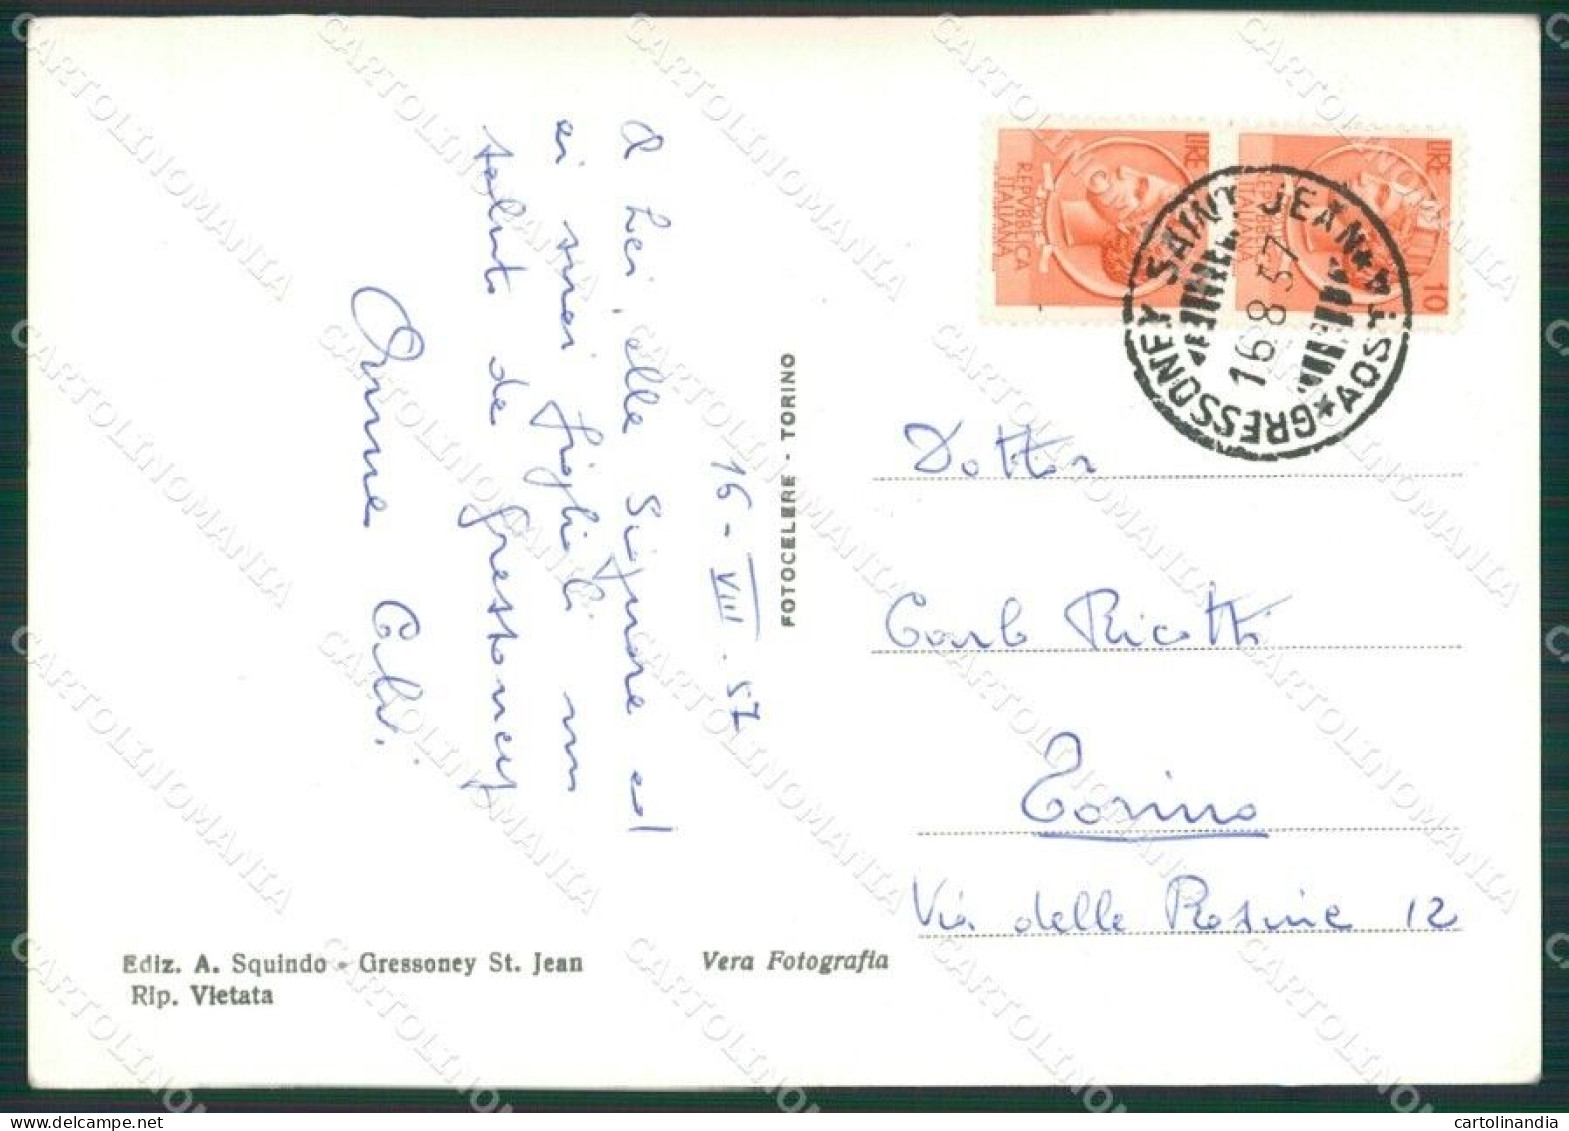 A Lei, alla Signora ed
ai suoi figli un
saluto da Gressoney
16-VIII.57
FOTOCELERE - TORINO
LIRE
REPVBBLICA
ITALIANA
LIRE
10
GRESSONEY SAINT JEAN * AOSTA *
16 8 57
Dottor
Carlo Ricotti
Torino
Via delle Rosine 12
Ediz. A. Squindo - Gressoney St. Jean
Rip. Vietata
Vera Fotografia
CARTOLINOMANIA
cartolinandia